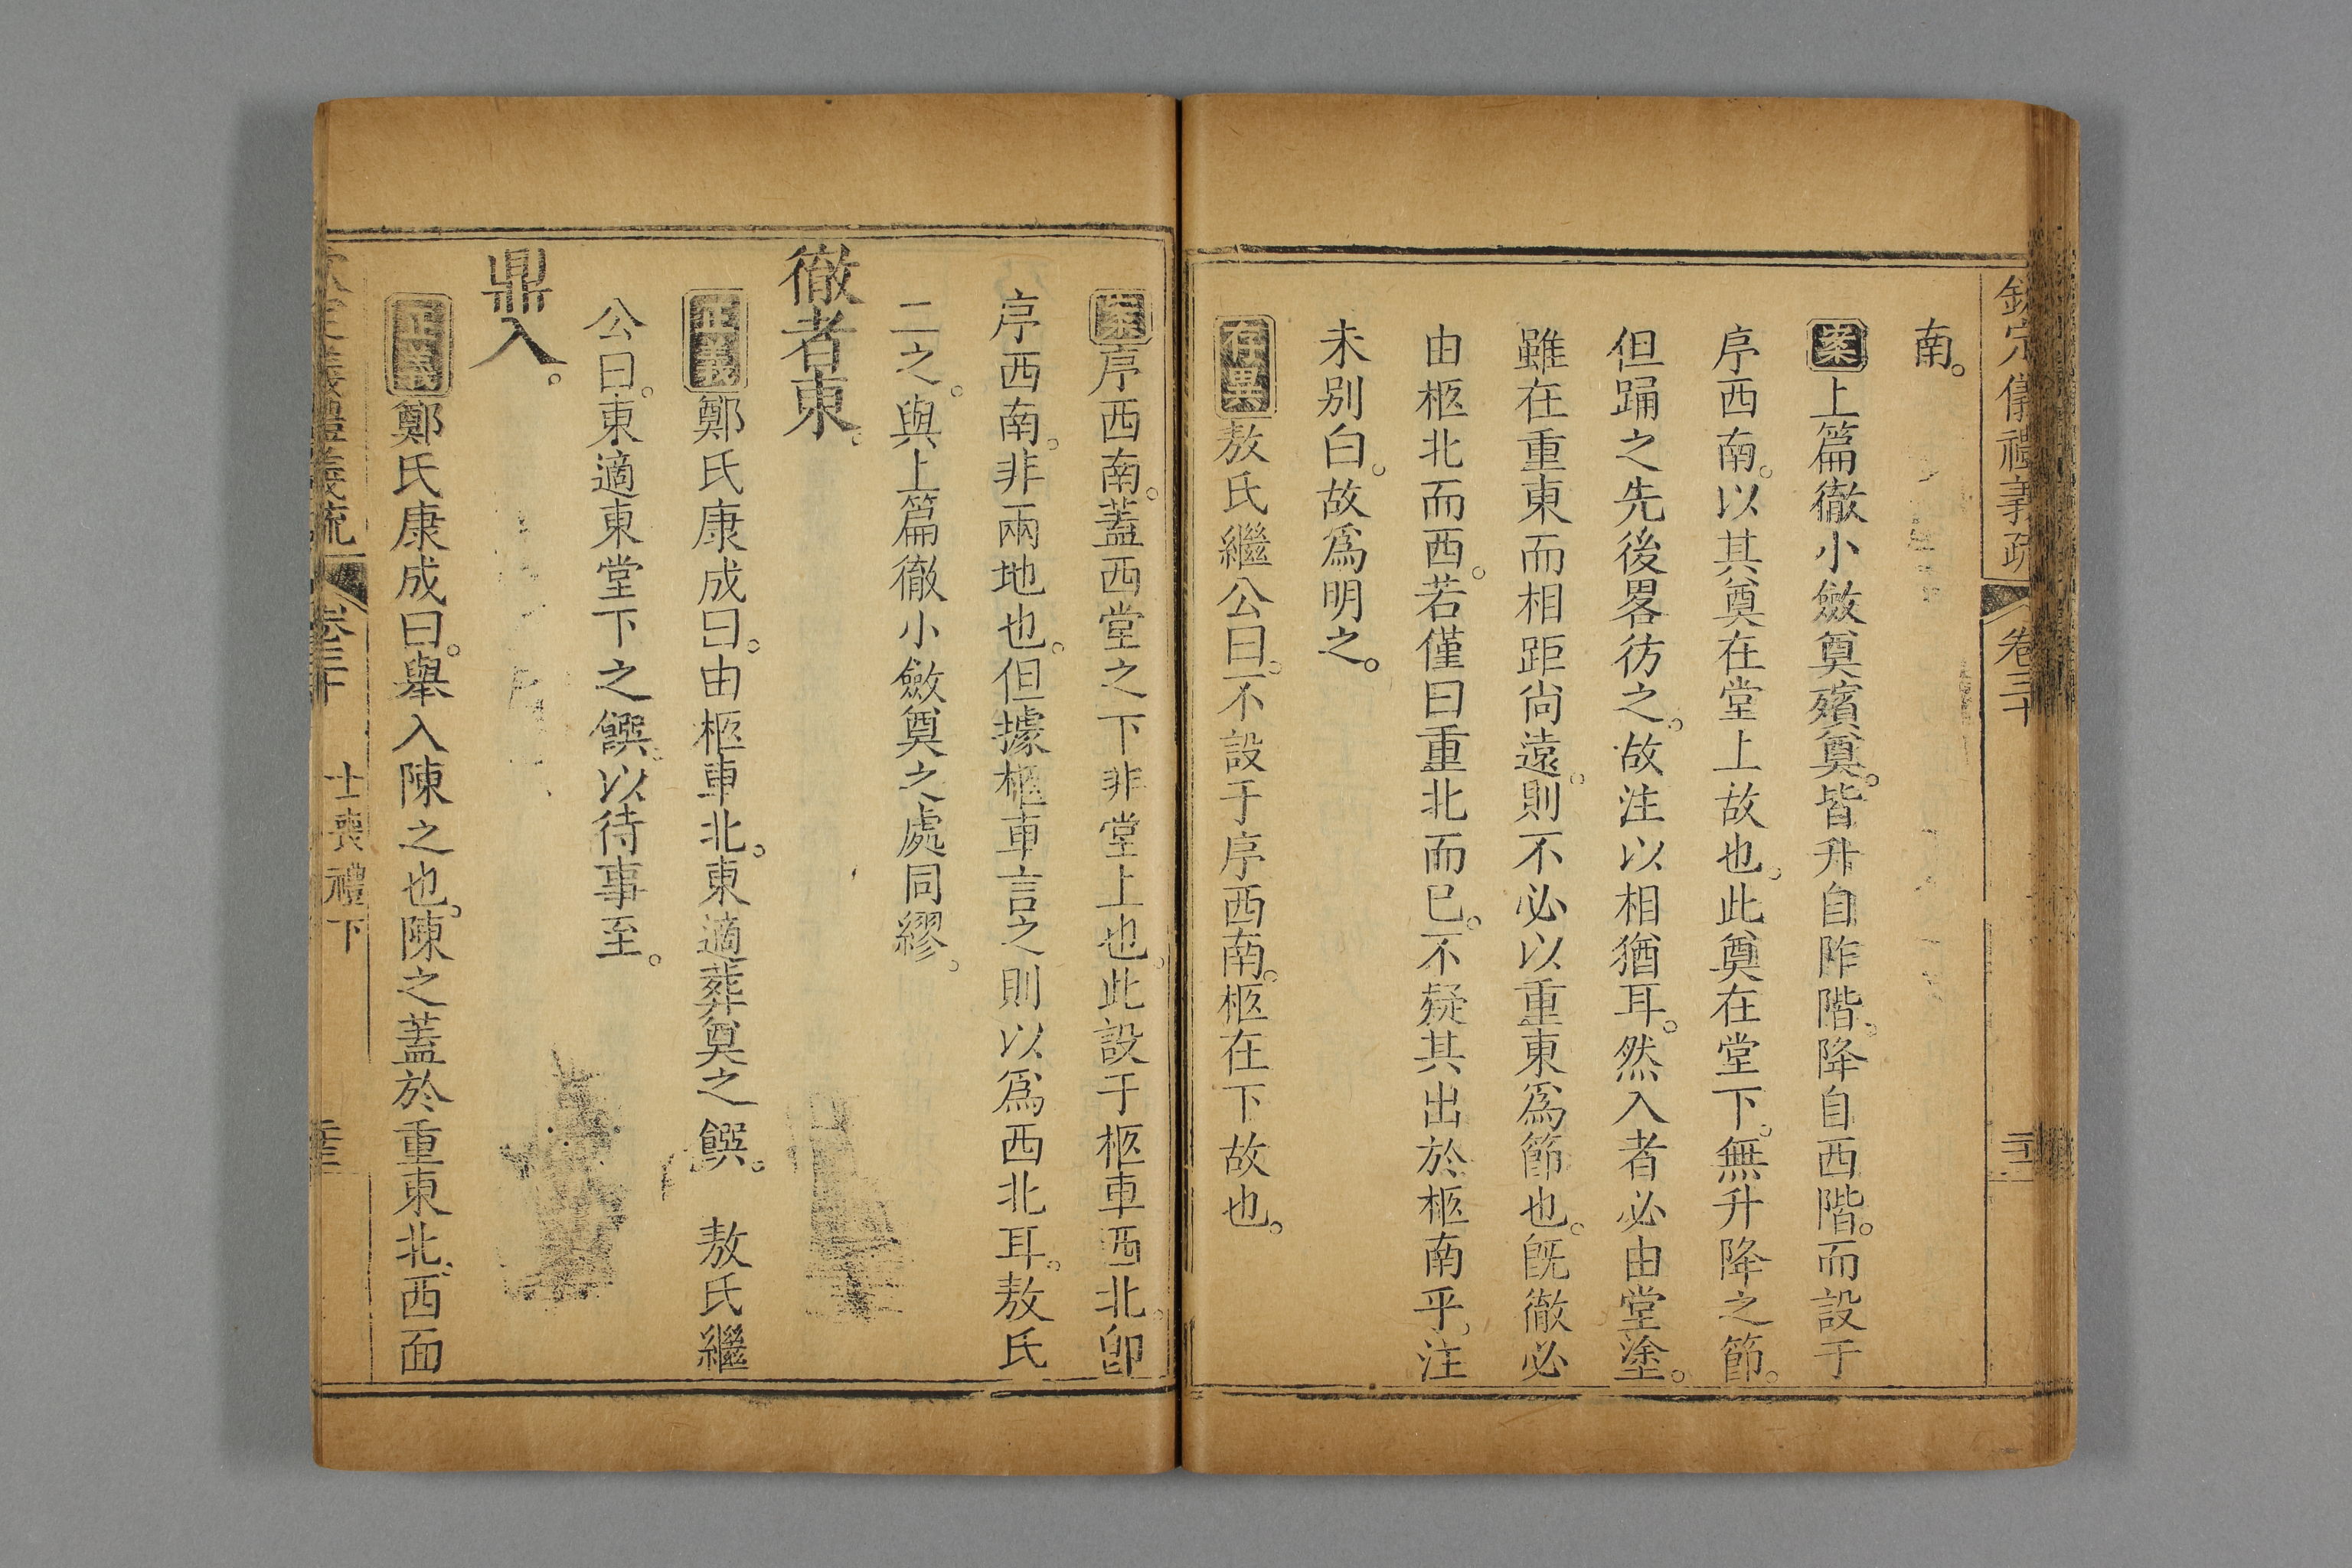 欽定儀禮義疏 卷三十
南。
案上篇徹小斂奠殯奠。皆升自阼階。降自西階。而設于
序西南。以其奠在堂上故也。此奠在堂下。無升降之節。
但踊之先後畧彷之。故注以相猶耳。然入者必由堂塗。
雖在重東而相距尚遠。則不必以重東爲節也。旣徹必
由柩北而西。若僅曰重北而已。不疑其出於柩南乎。注
未别白。故爲明之。
存異敖氏繼公曰。不設于序西南。柩在下故也。
案序西南。蓋西堂之下非堂上也。此設于柩車西北。卽
序西南。非兩地也。但據柩車言之則以爲西北耳。敖氏
二之。與上篇徹小斂奠之處同繆。
徹者東。
正義鄭氏康成曰。由柩車北。東適葬奠之饌。 敖氏繼
公曰。東適東堂下之饌。以待事至。
鼎入。
正義鄭氏康成曰。舉入陳之也。陳之蓋於重東北。西面
義禮義疏 卷三十 士喪禮下